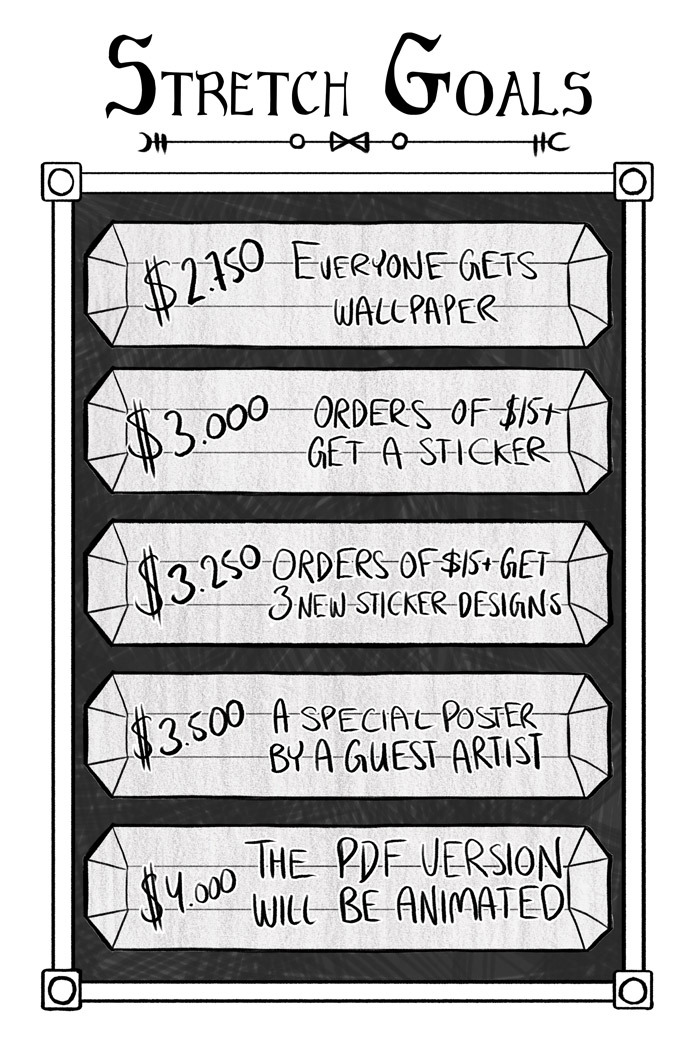 Stretch Goals
$2.750 Everyone gets
wallpaper
$3.000 orders of $15+
get a sticker
$3.250 orders of $15+ get
3 new sticker designs
$3.500 A special poster
by a guest artist
$4.000 The PDF version
will be animated